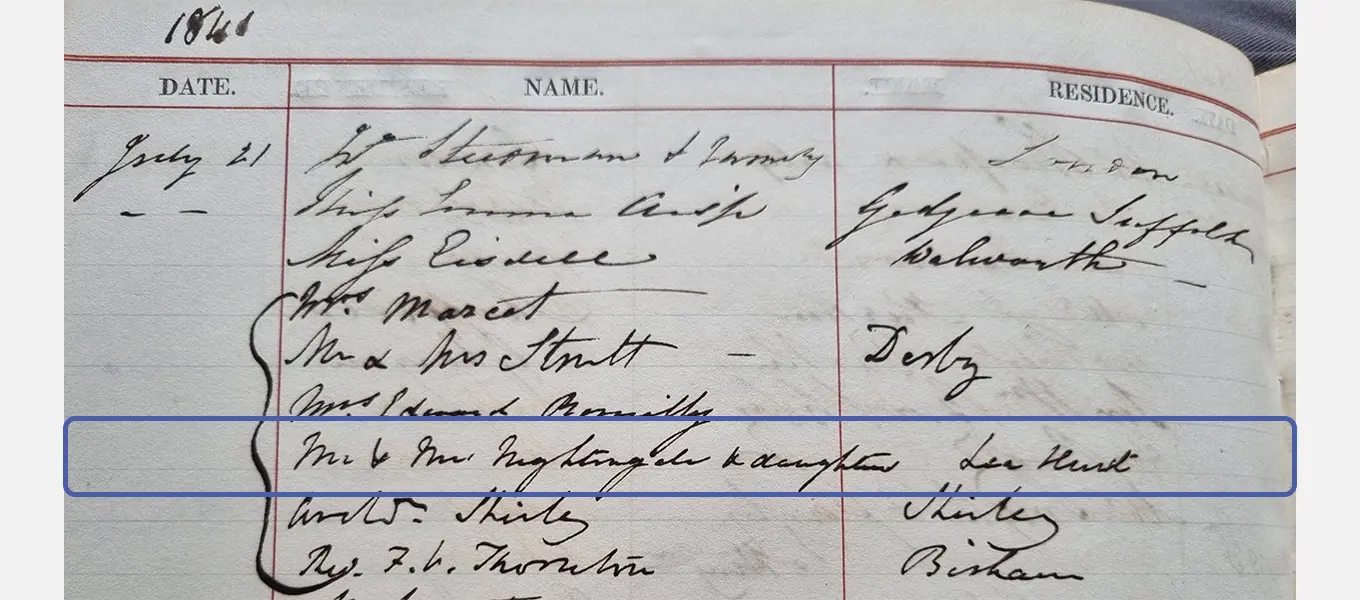 1841
DATE. NAME. RESIDENCE.
July 21 Wm Steedman & Family London
- - Miss Emma Crisp Gedgrave Suffolk
Miss Eisdell Walworth -
Mrs Marcet
Mr & Mrs Strutt - Derby
Mrs Edward Romilly
Mr & Mrs Nightingale & daughters Lea Hurst
Archdn Shirley Shirley
Rev. F. V. Thornton Bisham